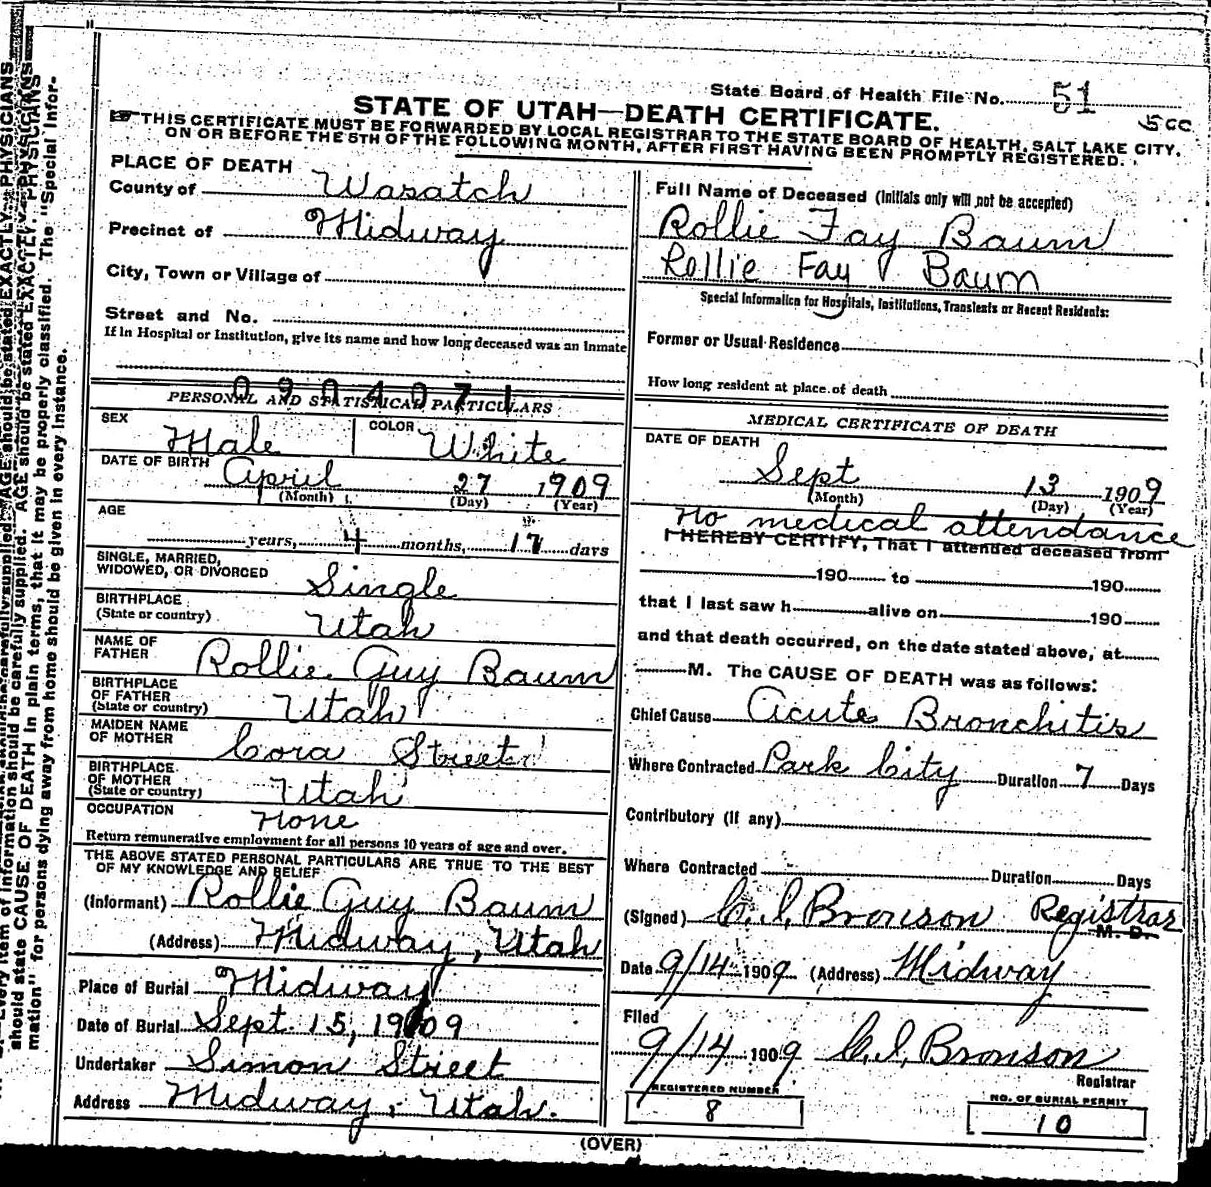 State Board of Health File No. 51
5cc
STATE OF UTAH—DEATH CERTIFICATE.
THIS CERTIFICATE MUST BE FORWARDED BY LOCAL REGISTRAR TO THE STATE BOARD OF HEALTH, SALT LAKE CITY,
ON OR BEFORE THE 5TH OF THE FOLLOWING MONTH, AFTER FIRST HAVING BEEN PROMPTLY REGISTERED.
PLACE OF DEATH
County of Wasatch
Precinct of Midway
City, Town or Village of
Street and No.
If in Hospital or Institution, give its name and how long deceased was an Inmate
0904071
PERSONAL AND STATISTICAL PARTICULARS
SEX Male COLOR White
DATE OF BIRTH April 27 1909
(Month) (Day) (Year)
AGE
years, 4 months, 17 days
SINGLE, MARRIED,
WIDOWED, OR DIVORCED Single
BIRTHPLACE
(State or country) Utah
NAME OF
FATHER Rollie Guy Baum
BIRTHPLACE
OF FATHER
(State or country) Utah
MAIDEN NAME
OF MOTHER Cora Street
BIRTHPLACE
OF MOTHER
(State or country) Utah
OCCUPATION None
Return remunerative employment for all persons 10 years of age and over.
THE ABOVE STATED PERSONAL PARTICULARS ARE TRUE TO THE BEST
OF MY KNOWLEDGE AND BELIEF
(Informant) Rollie Guy Baum
(Address) Midway, Utah
Place of Burial Midway
Date of Burial Sept. 15, 1909
Undertaker Simon Street
Address Midway, Utah.
Full Name of Deceased (Initials only will not be accepted)
Rollie Fay Baum
Rollie Fay Baum
Special Information for Hospitals, Institutions, Transients or Recent Residents:
Former or Usual Residence
How long resident at place of death
MEDICAL CERTIFICATE OF DEATH
DATE OF DEATH
Sept 13 1909
(Month) (Day) (Year)
No medical attendance
I HEREBY CERTIFY, That I attended deceased from
190 to 190
that I last saw h alive on 190
and that death occurred, on the date stated above, at
M. The CAUSE OF DEATH was as follows:
Chief Cause Acute Bronchitis
Where Contracted Park City Duration 7 Days
Contributory (If any)
Where Contracted Duration Days
(Signed) C.I. Bronson Registrar
M. D.
Date 9/14 1909 (Address) Midway
Filed
9/14 1909 C.I. Bronson
Registrar
REGISTERED NUMBER
8
NO. OF BURIAL PERMIT
10
(OVER)
Every item of information should be carefully supplied. AGE should be stated EXACTLY. PHYSICIANS
should state CAUSE OF DEATH in plain terms, that it may be properly classified. The "Special Infor-
mation" for persons dying away from home should be given in every instance.